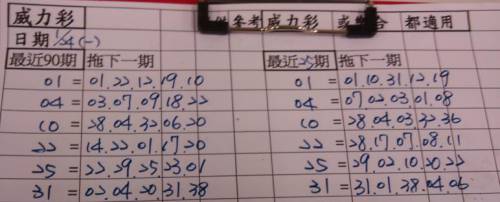 威力彩 參考 威力彩 或 合 都適用
日期 1/24(一)
最近90期 拖下一期 最近25期 拖下一期
01 = 01.22.12.19.10 01 = 01.10.31.12.19
04 = 03.07.09.18.22 04 = 07.02.03.01.08
10 = 28.04.32.06.20 10 = 28.04.03.32.36
22 = 14.22.01.17.20 22 = 28.17.07.08.11
25 = 22.29.25.23.01 25 = 29.02.10.20.22
31 = 02.04.20.31.38 31 = 31.01.38.04.06